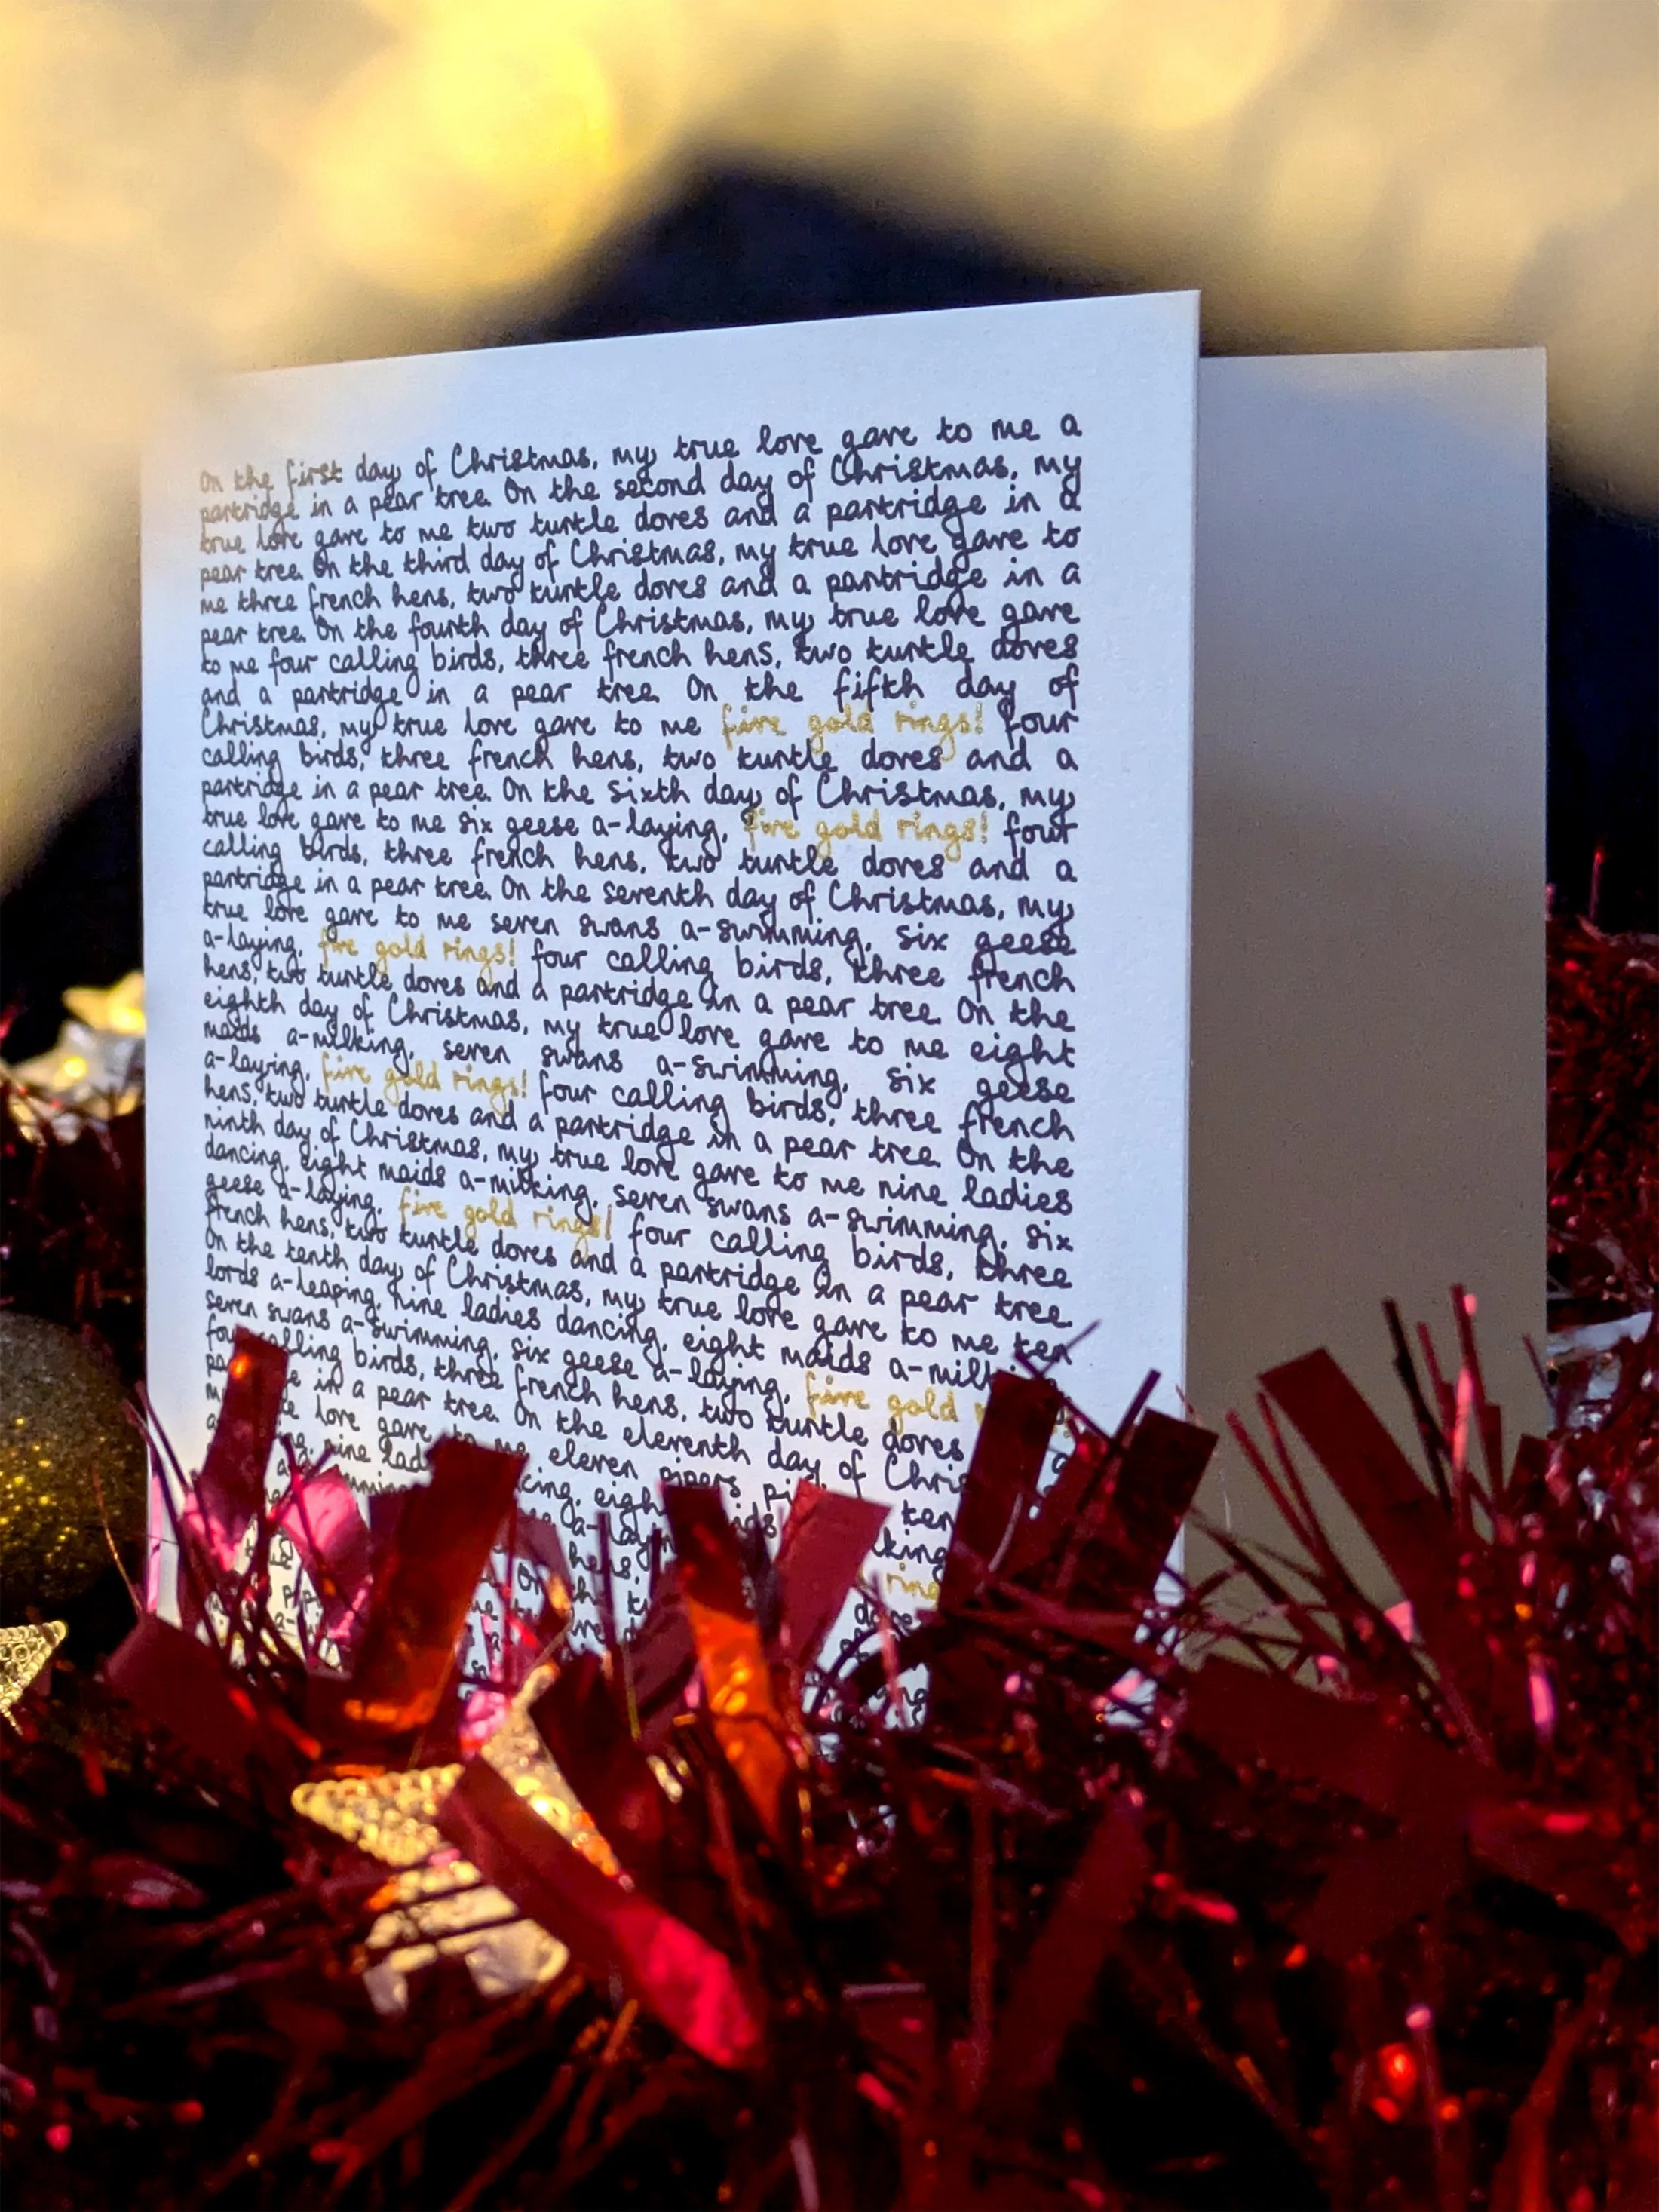 On the first day of Christmas, my true love gave to me a
partridge in a pear tree. On the second day of Christmas, my
true love gave to me two turtle doves and a partridge in a
pear tree. On the third day of Christmas, my true love gave to
me three french hens, two turtle doves and a partridge in a
pear tree. On the fourth day of Christmas, my true love gave
to me four calling birds, three french hens, two turtle doves
and a partridge in a pear tree. On the fifth day of
Christmas, my true love gave to me five gold rings! four
calling birds, three french hens, two turtle doves and a
partridge in a pear tree. On the sixth day of Christmas, my
true love gave to me six geese a-laying, five gold rings! four
calling birds, three french hens, two turtle doves and a
partridge in a pear tree. On the seventh day of Christmas, my
true love gave to me seven swans a-swimming, six geese
a-laying, five gold rings! four calling birds, three french
hens, two turtle doves and a partridge in a pear tree. On the
eighth day of Christmas, my true love gave to me eight
maids a-milking, seven swans a-swimming, six geese
a-laying, five gold rings! four calling birds, three french
hens, two turtle doves and a partridge in a pear tree. On the
ninth day of Christmas, my true love gave to me nine ladies
dancing, eight maids a-milking, seven swans a-swimming, six
geese a-laying, five gold rings! four calling birds, three
french hens, two turtle doves and a partridge in a pear tree.
On the tenth day of Christmas, my true love gave to me ten
lords a-leaping, nine ladies dancing, eight maids
seven swans a-swimming, six geese a-laying, five gold
four calling birds, three french hens, two turtle doves
in a pear tree. On the eleventh day of
love gave to me eleven pipers
nine eight ten
a-laying
hens,
On